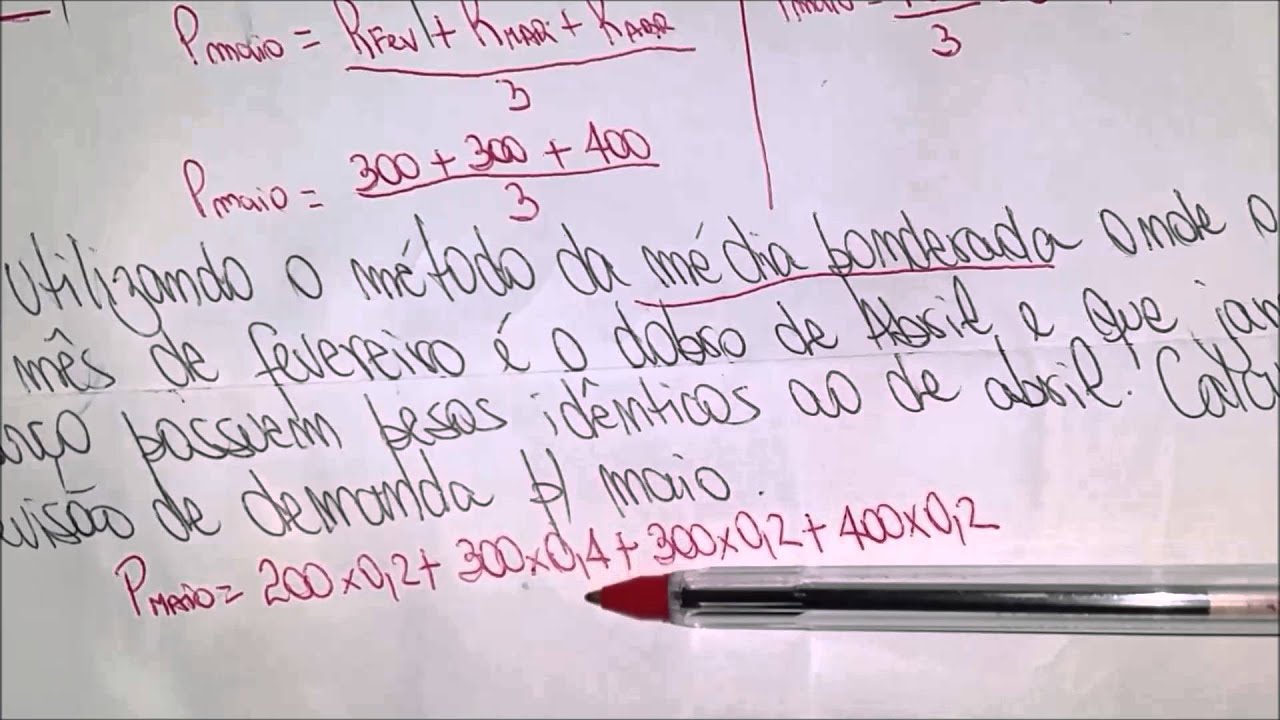 Pmaio = RFev + RMAR + RABR
3
3
Pmaio = 300 + 300 + 400
3
Utilizando o método da média ponderada onde o
mês de fevereiro é o dobro de Abril e que jan
possuem pesos idênticos ao de abril. Calcu
evisão de demanda p/ maio.
PMAIO = 200x0,2 + 300x0,4 + 300x0,2 + 400x0,2